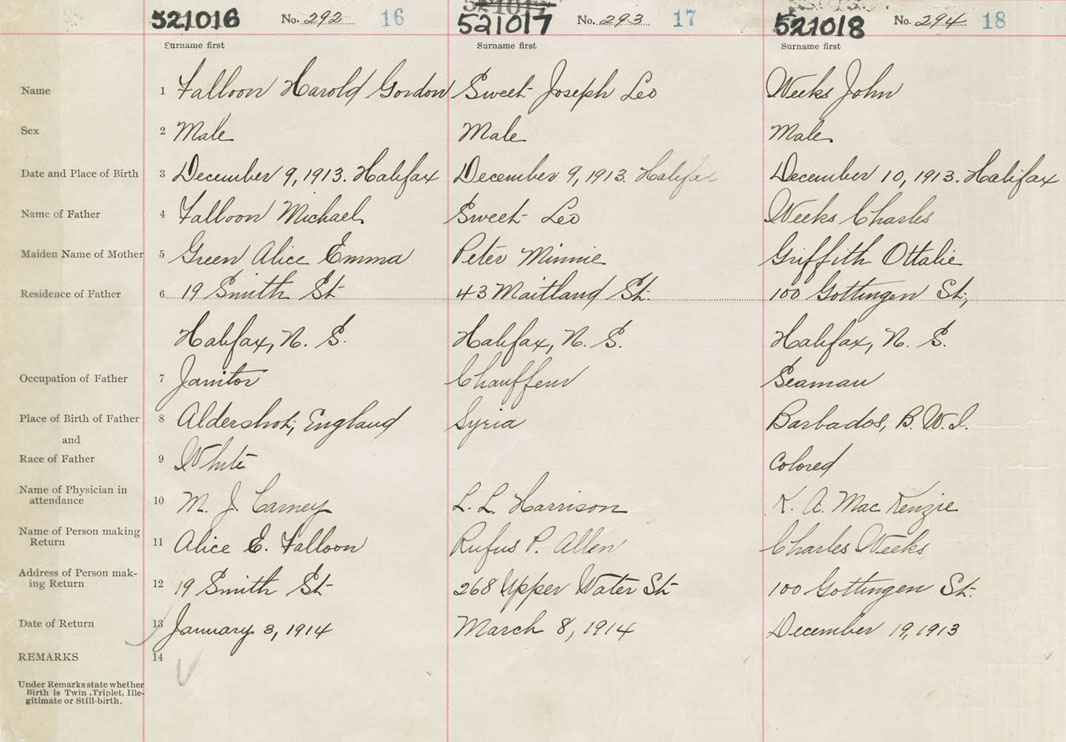 521016 No. 292 16 521017 No. 293 17 521018 No. 294 18
Surname first Surname first Surname first
Name 1 Falloon Harold Gordon Sweet Joseph Leo Weeks John
Sex 2 Male Male Male
Date and Place of Birth 3 December 9, 1913. Halifax December 9, 1913. Halifax December 10, 1913. Halifax
Name of Father 4 Falloon Michael Sweet Leo Weeks Charles
Maiden Name of Mother 5 Green Alice Emma Peter Minnie Griffith Ottalie
Residence of Father 6 19 Smith St 43 Maitland St. 100 Gottingen St.,
Halifax, N. S. Halifax, N. S. Halifax, N. S.
Occupation of Father 7 Janitor Chauffeur Seaman
Place of Birth of Father 8 Aldershot, England Syria Barbados, B. W. I.
and
Race of Father 9 White Colored
Name of Physician in
attendance 10 M. J. Carney L. L. Harrison K. A. Mac Kenzie
Name of Person making
Return 11 Alice E. Falloon Rufus P. Allen Charles Weeks
Address of Person mak-
ing Return 12 19 Smith St 268 Upper Water St. 100 Gottingen St.
Date of Return 13 January 3, 1914 March 8, 1914 December 19, 1913
REMARKS 14
Under Remarks state whether
Birth is Twin, Triplet, Ille-
gitimate or Still-birth.